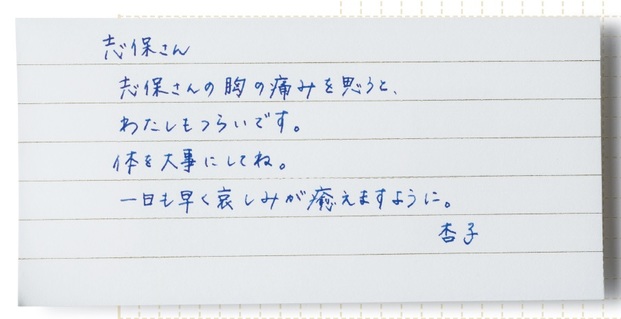 志保さん
志保さんの胸の痛みを思うと、
わたしもつらいです。
体を大事にしてね。
一日も早く哀しみが癒えますように。
杏子